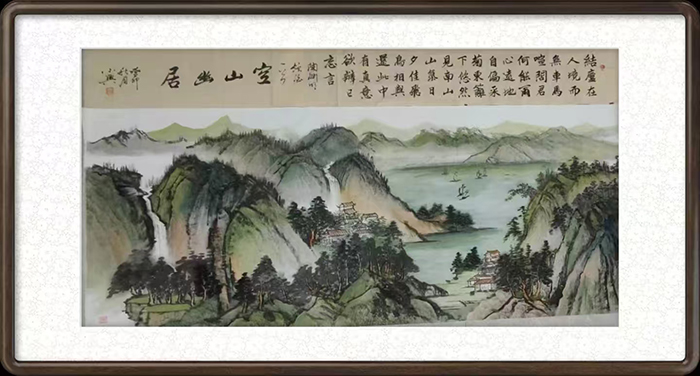 結廬在
人境而
無車馬
喧問君
何能爾
心遠地
自偏采
菊東籬
下悠然
見南山
山氣日
夕佳飛
鳥相與
還此中
有真意
欲辯已
忘言
陶淵明
空山幽居
秋月